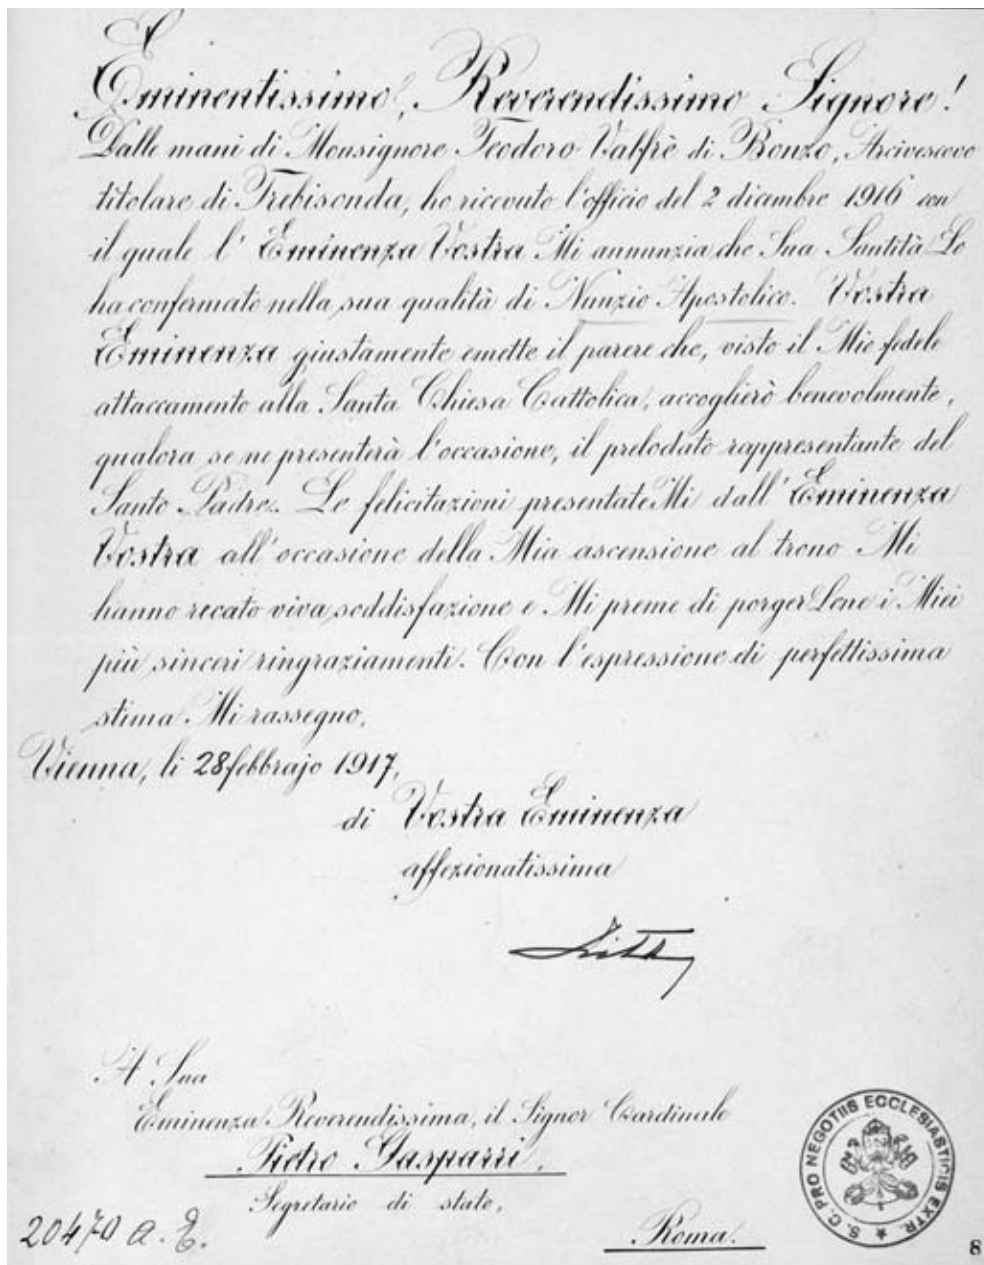 Eminentissimo, Reverendissimo Signore!
Dalle mani di Monsignore Teodoro Valfrè di Bonzo, Arcivescovo
titolare di Trebisonda, ho ricevuto l'officio del 2 dicembre 1916 con
il quale l' Eminenza Vostra Mi annunzia che Sua Santità Lo
ha confermato nella sua qualità di Nunzio Apostolico. Vostra
Eminenza giustamente emette il parere che, visto il Mio fedele
attaccamento alla Santa Chiesa Cattolica, accoglierò benevolmente,
qualora se ne presenterà l'occasione, il prelodato rappresentante del
Santo Padre. Le felicitazioni presentateMi dall' Eminenza
Vostra all'occasione della Mia ascensione al trono Mi
hanno recato viva soddisfazione e Mi preme di porgerLene i Miei
più sinceri ringraziamenti. Con l'espressione di perfettissima
stima Mi rassegno,
Vienna, li 28 febbrajo 1917,
di Vostra Eminenza
affezionatissima
Zita
A Sua
Eminenza Reverendissima, il Signor Cardinale
Pietro Gasparri,
Segretario di stato,
Roma.
20470 a. E.
S. C. PRO NEGOTIIS ECCLESIASTICIS EXTR.
8